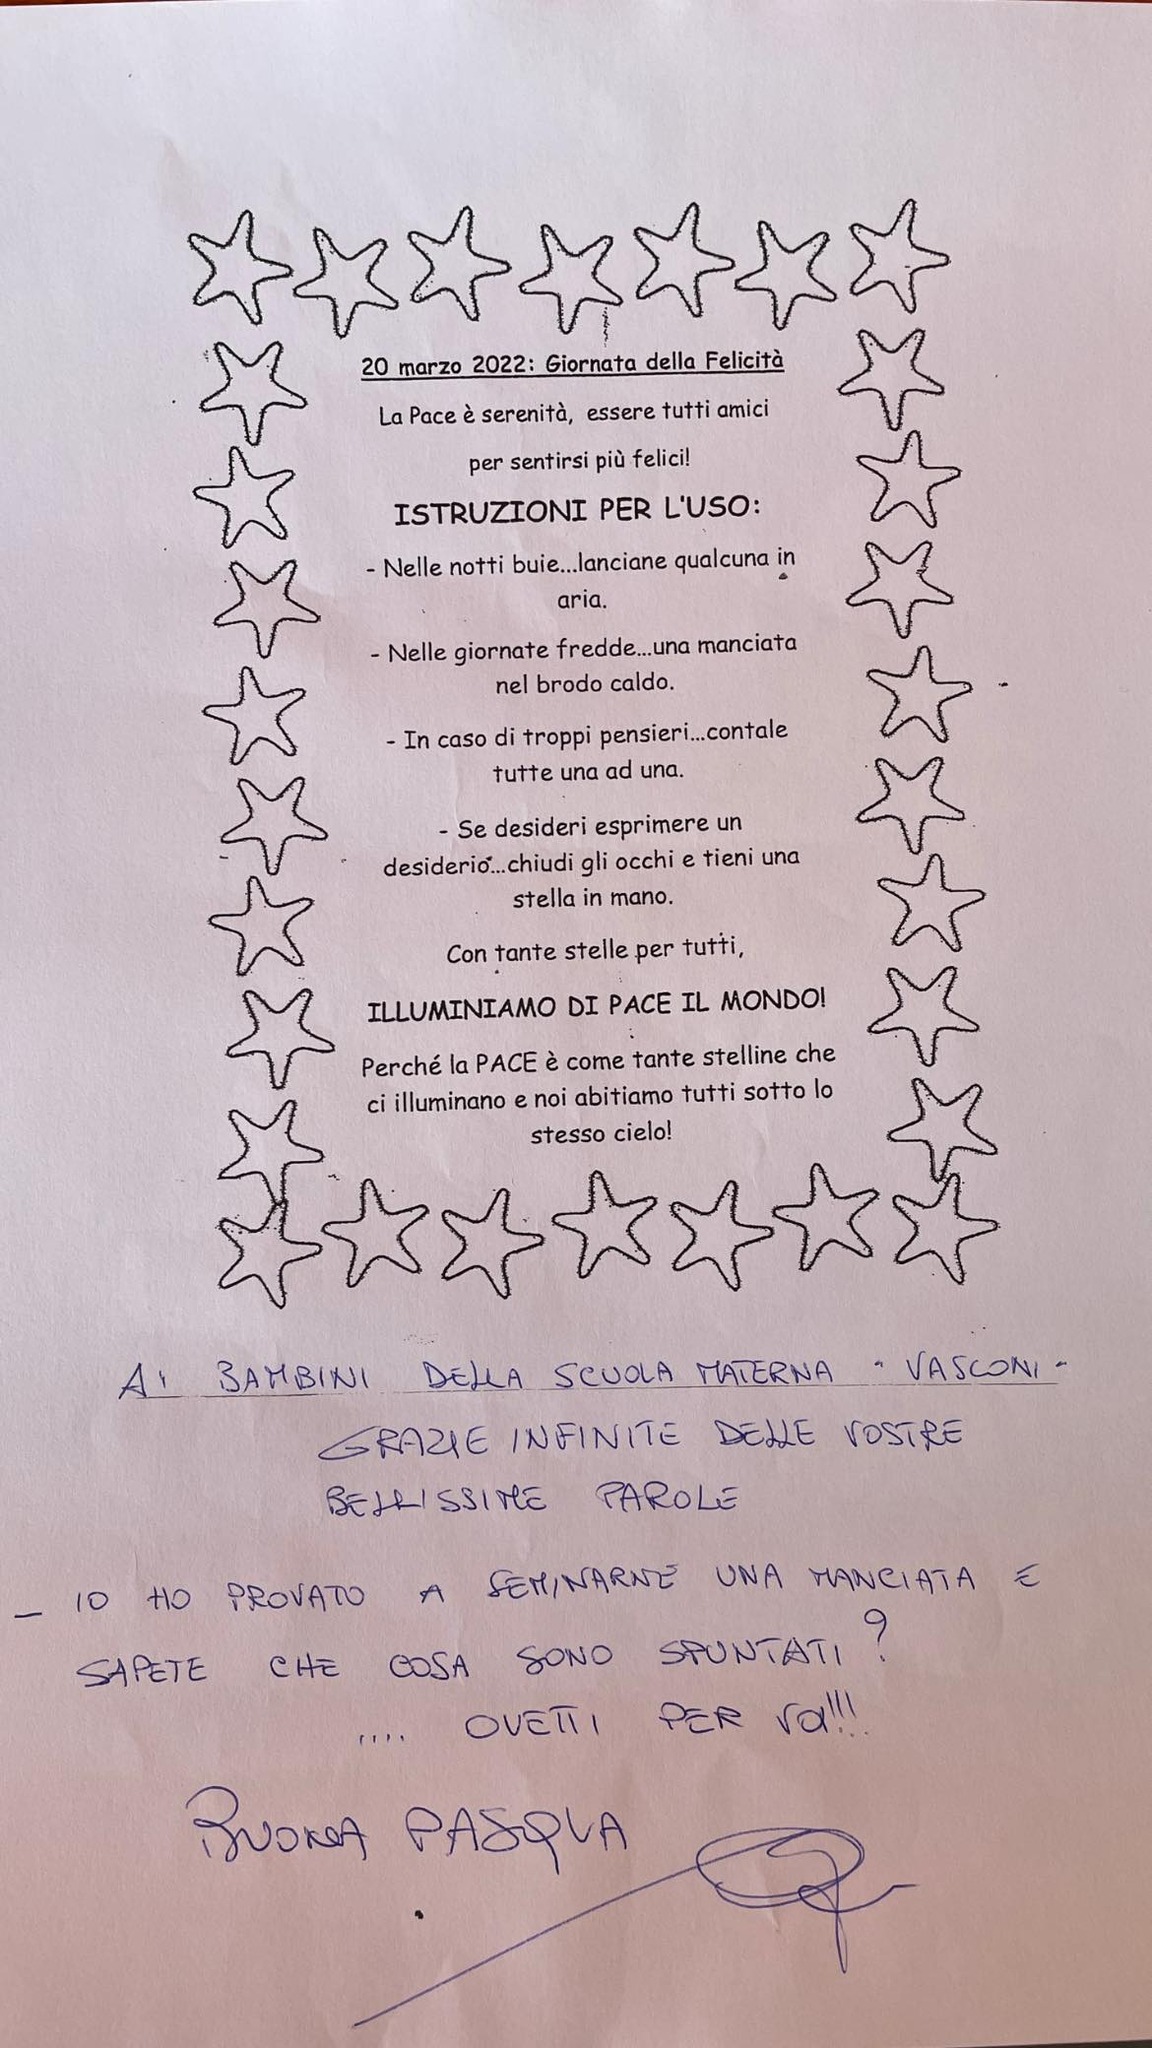 20 marzo 2022: Giornata della Felicità
La Pace è serenità, essere tutti amici
per sentirsi più felici!
ISTRUZIONI PER L'USO:
- Nelle notti buie...lanciane qualcuna in
aria.
- Nelle giornate fredde...una manciata
nel brodo caldo.
- In caso di troppi pensieri...contale
tutte una ad una.
- Se desideri esprimere un
desiderio...chiudi gli occhi e tieni una
stella in mano.
Con tante stelle per tutti,
ILLUMINIAMO DI PACE IL MONDO!
Perché la PACE è come tante stelline che
ci illuminano e noi abitiamo tutti sotto lo
stesso cielo!
AI BAMBINI DELLA SCUOLA MATERNA "VASCONI"
GRAZIE INFINITE DELLE VOSTRE
BELLISSIME PAROLE
- IO HO PROVATO A SEMINARNE UNA MANCIATA E
SAPETE CHE COSA SONO SPUNTATI?
.... OVETTI PER VOI!!!
BUONA PASQUA